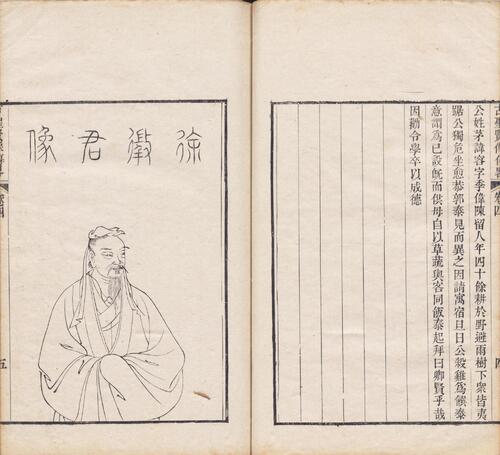 古聖賢像傳畧
卷四
四
公姓茅諱容字季偉陳留人年四十餘耕於野避雨樹下衆皆夷
踞公獨危坐愈恭郭泰見而異之因請寓宿旦日公殺雞爲饌泰
意謂爲已設既而供母自以草蔬與客同飯泰起拜曰卿賢乎哉
因勸令學卒以成德
徐徵君像
卷四
五